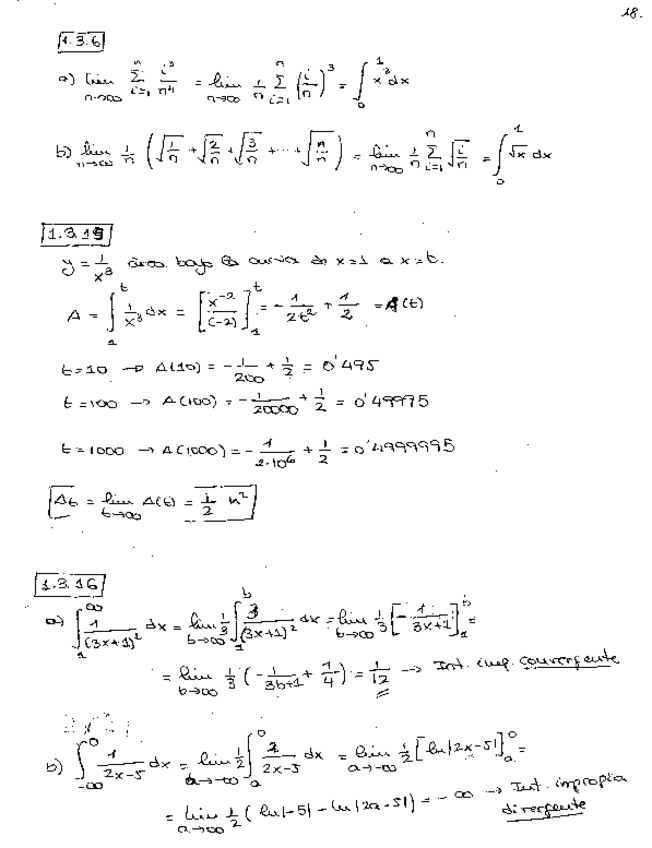 18.
1.3.6
a) lim n→∞ Σ i=1 n i³/n⁴ = lim n→∞ 1/n Σ i=1 n (i/n)³ = ∫₀¹ x³ dx
b) lim n→∞ 1/n (√(1/n) + √(2/n) + √(3/n) + ... + √(n/n)) = lim n→∞ 1/n Σ i=1 n √(i/n) = ∫₀¹ √x dx
1.3.15
y = 1/x³ área bajo la curva de x=1 a x=t.
A = ∫₁ᵗ 1/x³ dx = [x⁻²/(-2)]₁ᵗ = -1/2t² + 1/2 = A(t)
t=10 → A(10) = -1/200 + 1/2 = 0'495
t=100 → A(100) = -1/20000 + 1/2 = 0'49995
t=1000 → A(1000) = -1/2·10⁶ + 1/2 = 0'4999995
At = lim t→∞ A(t) = 1/2 u²
1.3.16
a) ∫₁^∞ 1/(3x+1)² dx = lim b→∞ 1/3 ∫₁ᵇ 3/(3x+1)² dx = lim b→∞ 1/3 [-1/3x+1]₁ᵇ =
= lim b→∞ 1/3 (-1/3b+1 + 1/4) = 1/12 → Int. imp. convergente
b) ∫₋∞⁰ 1/2x-5 dx = lim a→-∞ 1/2 ∫ₐ⁰ 2/2x-5 dx = lim a→-∞ 1/2 [ln|2x-5|]ₐ⁰ =
= lim a→∞ 1/2 (ln|-5| - ln|2a-5|) = -∞ → Int. impropia
divergente